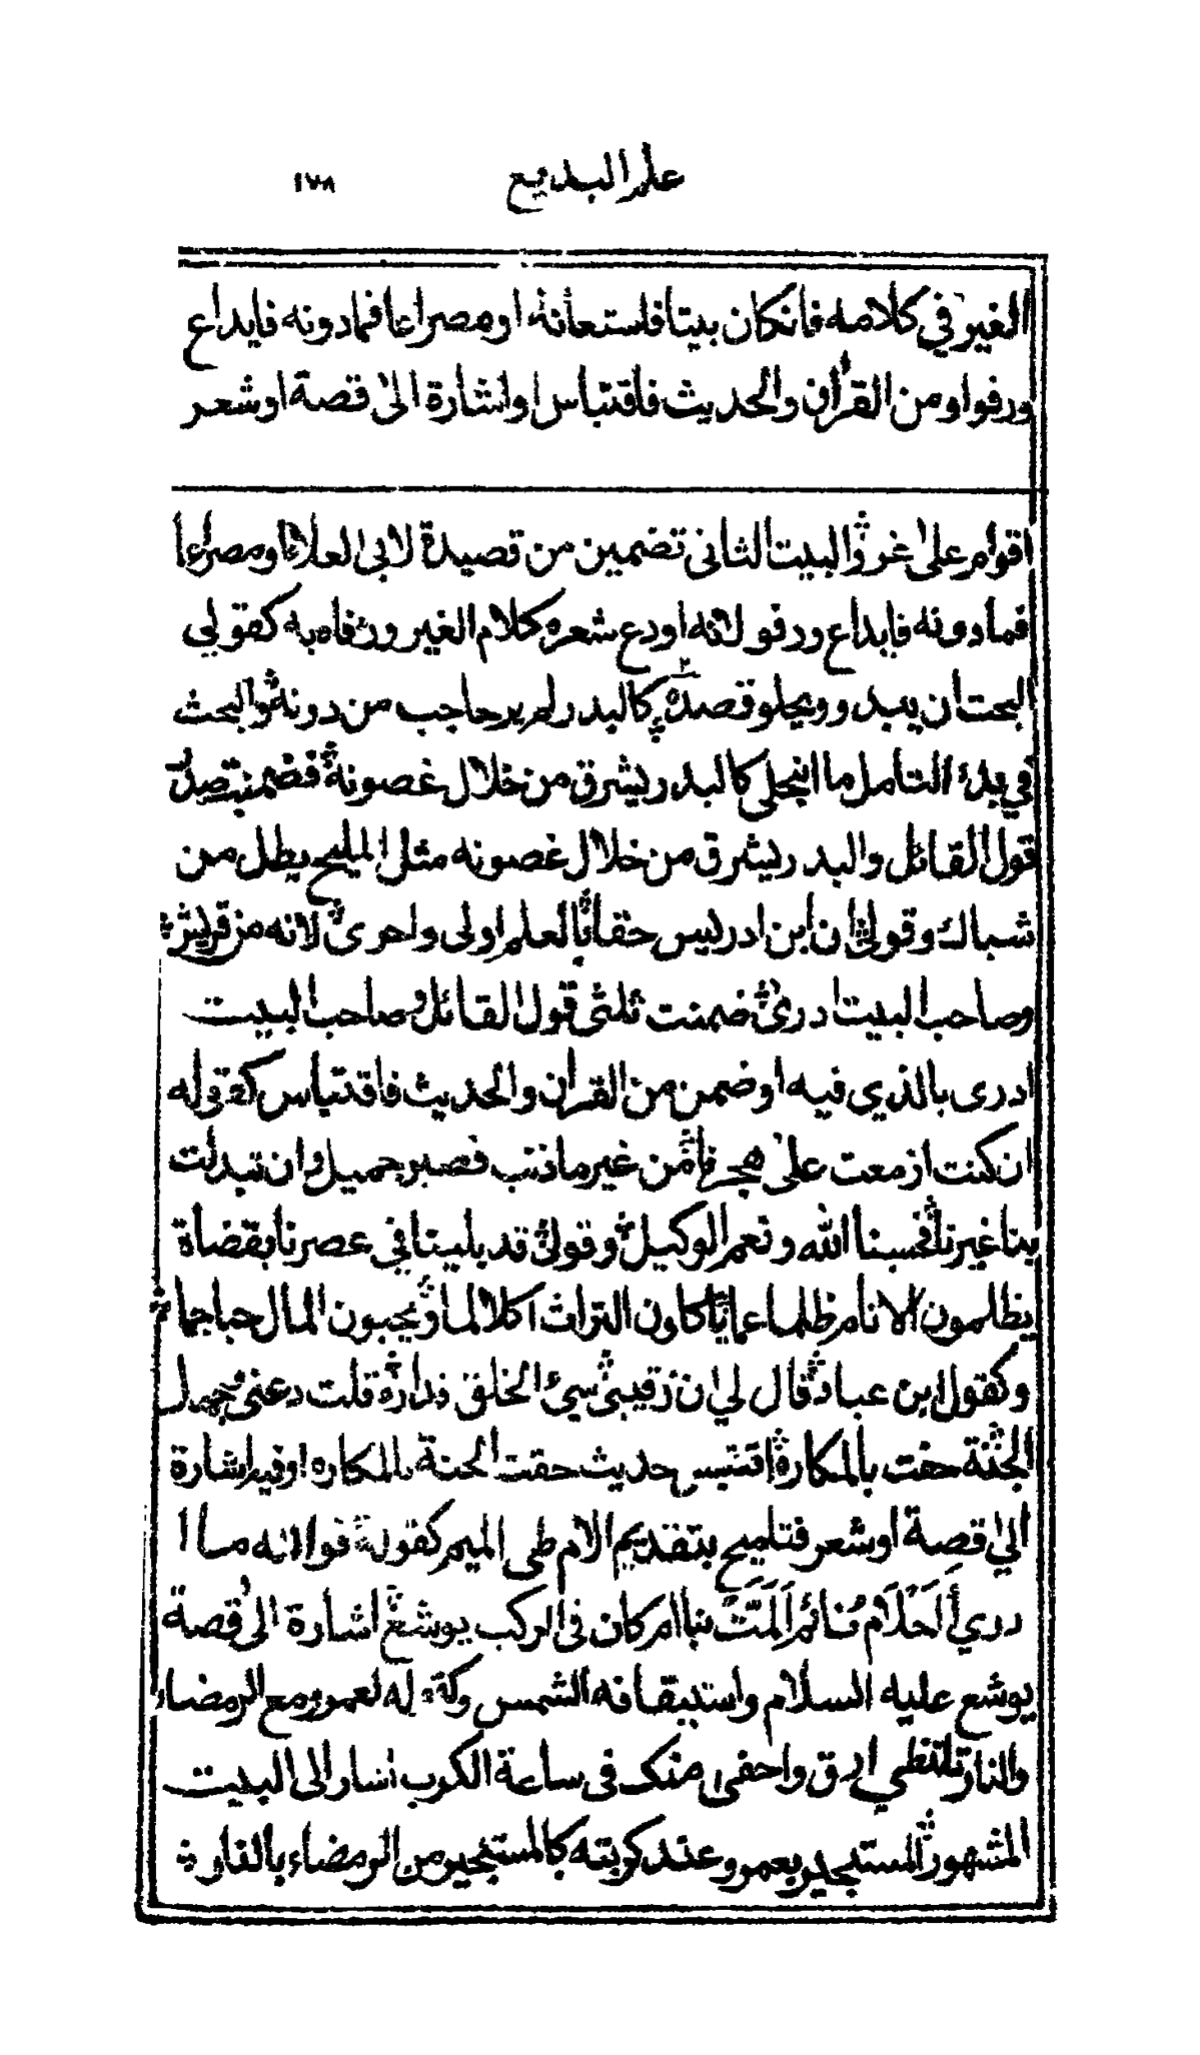 علم البديع ١٧٨
الغير في كلامه فانكان بيتا فاستعانة او مصراعا فمادونه فايداع
ورفو او من القرأن والحديث فاقتباس او اشارة الى قصة او شعر
اقوام على غرر والبيت الثانى تضمين من قصيدة لابى العلاء او مصراعا
فمادونه فايداع ورفو لانه اودع شعره كلام الغير ورفاه به كقولي
البحث ان يبدو ويحلو قصده كالبدر لم ير حاجب من دونه والبحث
في بدء التامل ما انجلى كالبدر يشرق من خلال غصونه فضمنت صدر
قول القائل والبدر يشرق من خلال غصونه مثل المليح يطل من
شباك وقولي ان ابن ادريس حقا بالعلم اولى واحرى لانه من قريش
وصاحب البيت ادرى ضمنت ثلثى قول القائل وصاحب البيت
ادرى بالذي فيه او ضمن من القران والحديث فاقتباس كقوله
ان كنت ازمعت على هجرنا من غير ما ذنب فصبر جميل وان تبدلت
بنا غيرنا فحسبنا الله ونعم الوكيل وقولي قد بلينا في عصرنا بقضاة
يظلمون الانام ظلما عما ياكلون التراث اكلا لما ويحبون المال حبا جما
وكقول ابن عباد قال لي ان رقيبي سيء الخلق فداره قلت دعني وجهك
الجنة حفت بالمكاره اقتبس حديث حفت الجنة بالمكاره او فيه اشارة
الي قصة او شعر فتلميح بتقديم الام على الميم كقوله فوالله ما ا
دري أَأَحْلَام نائم أَلَمَّتْ بنا ام كان فى الركب يوشع اشارة الى قصة
يوشع عليه السلام واستيقافه الشمس وكقوله لعمرو مع الرمضاء
والنار تلتظي ارق واحفى منك فى ساعة الكرب اشار الى البيت
المشهور المستجير بعمرو عند كربته كالمستجير من الرمضاء بالنار